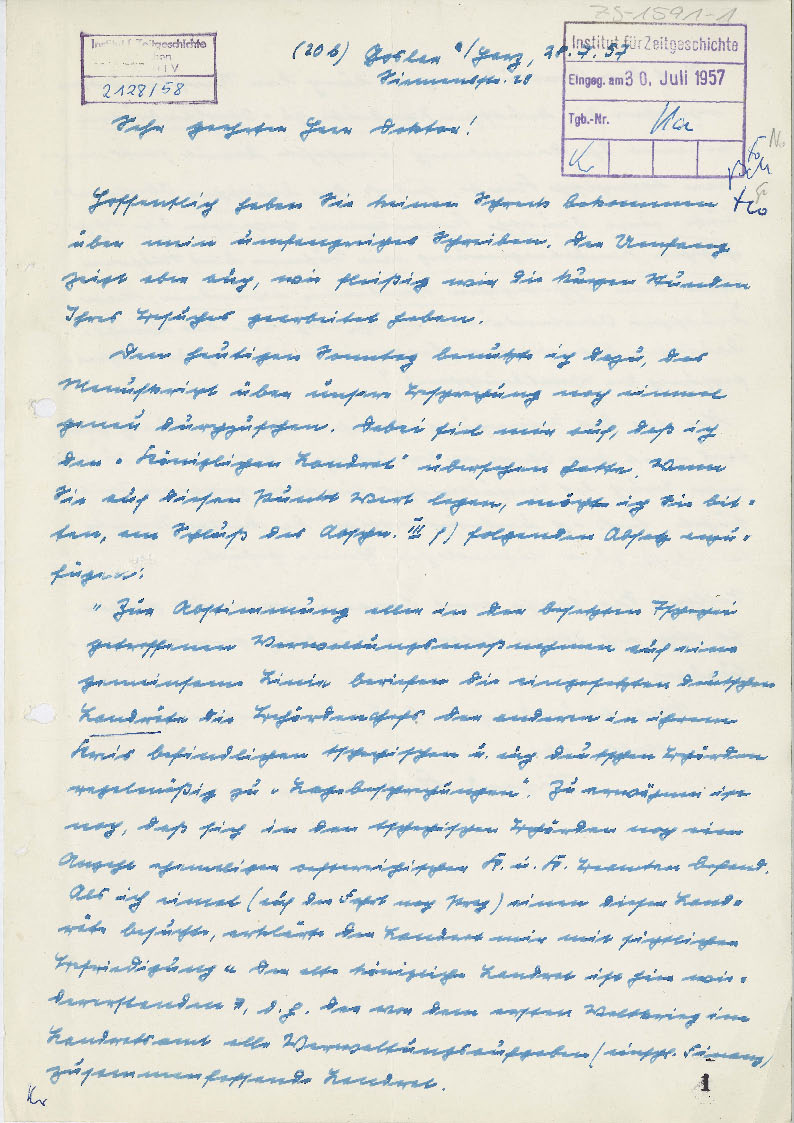 ZS-1591-1
Institut für Zeitgeschichte
2128/58
(20b) Goslar a/Harz, 28.7.57
Siemensstr. 20
Institut für Zeitgeschichte
Eingeg. am 30. Juli 1957
Tgb.-Nr.
Kr
Sehr geehrter Herr Doktor!
Hoffentlich haben Sie keinen Schreck bekommen
über mein umfangreiches Schreiben. Der Umfang
zeigt aber auch, wie fleißig wir die kurzen Stunden
Ihres Besuches gearbeitet haben.
Den heutigen Sonntag benutzte ich dazu, das
Manuskript über unsere Besprechung noch einmal
genau durchzusehen. Dabei fiel mir auf, daß ich
den "Königlichen Landrat" übersehen hatte. Wenn
Sie auf diesen Punkt Wert legen, möchte ich Sie bit-
ten, am Schluß des Abschn. III f) folgenden Absatz anzu-
fügen:
"Zur Abstimmung aller in der besetzten Tschechei
getroffenen Verwaltungsmaßnahmen auf eine
gemeinsame Linie beriefen die eingesetzten deutschen
Landräte die Behördenchefs der anderen in ihrem
Kreis befindlichen tschechischen u. auch deutschen Behörden
regelmäßig zu "Lagebesprechungen". Zu erwähnen ist
noch, daß sich in den tschechischen Behörden noch eine
Anzahl ehemaliger oesterreichischer K. u. K. Beamten befand.
Als ich einmal (auf der Fahrt nach Prag) einen dieser Land-
räte besuchte, erklärte der Landrat mir mit sichtlicher
Befriedigung "Der alte Königliche Landrat ist hier wie-
dererstanden", d.h. der vor dem ersten Weltkrieg im
Landratsamt alle Verwaltungsaufgaben (einschl. Finanz)
zusammenfassende Landrat.
1
Kr